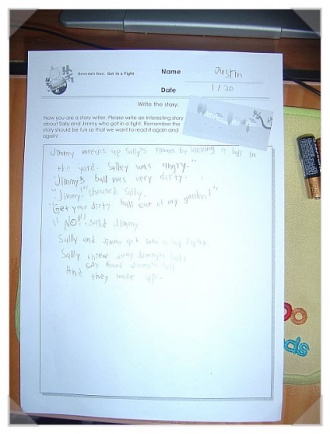 Got in a Fight
Name Justin
Date 1/20
Write the story.
Now you are a story writer. Please write an interesting story
about Sally and Jimmy who got in a fight. Remember the
story should be fun so that we want to read it again and
again!
Jimmy messes up Sally's by kicking a ball in
the yard. Salley was angry."
Jimmy's ball was very dirty.
"Jimmy!" shouted Sally.
"Get your dirty ball out of my garden!"
"NO!" said Jimmy
Sally and Jimmy got into a big fight
Sally threw away Jimmy's ball
ball
And they made up.